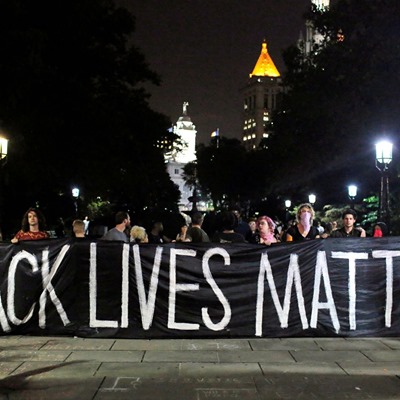 ACK LIVES MATT